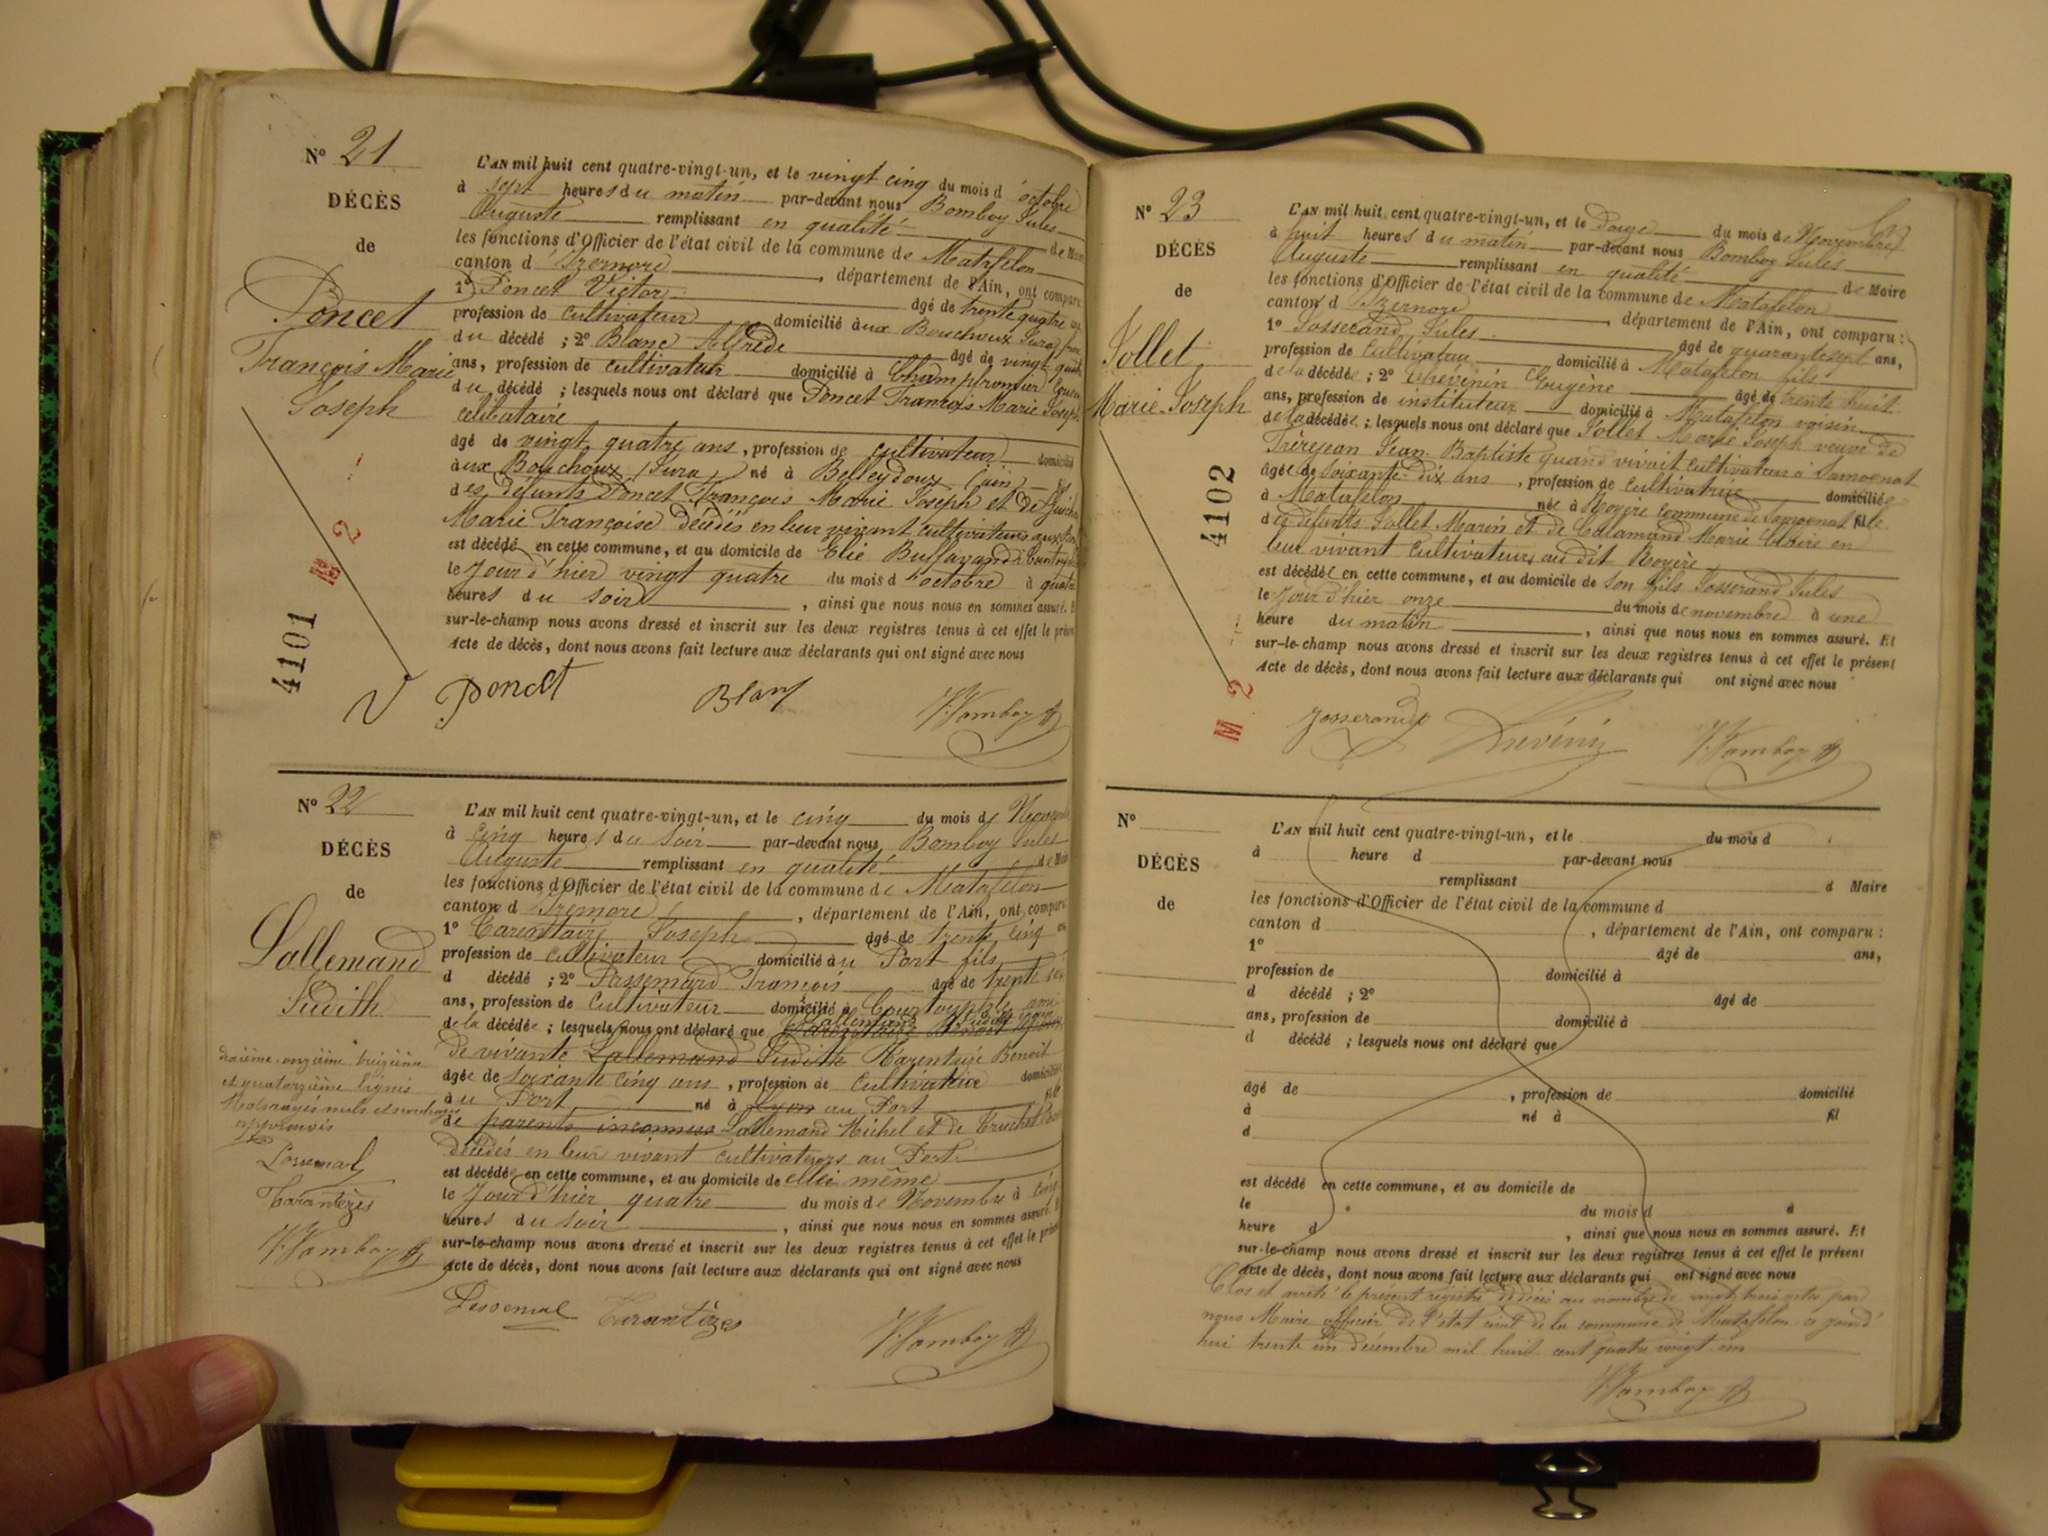 N° 21
DÉCÈS
de
Poncet
François Marie
Joseph
4101
M 2
L'AN mil huit cent quatre-vingt-un, et le vingt cinq du mois d'octobre
à sept heures du matin par-devant nous Bomboy Jules
Auguste remplissant en qualité de Maire
les fonctions d'Officier de l'état civil de la commune de Matafelon
canton d'Izernore, département de l'Ain, ont comparu
1° Poncet Victor âgé de trente quatre ans
profession de cultivateur domicilié aux Bouchoux Jura frère
du décédé ; 2° Blanc Alfrède âgé de vingt quatre
ans, profession de cultivateur domicilié à Champfromier
du décédé ; lesquels nous ont déclaré que Poncet François Marie Joseph
célibataire
âgé de vingt quatre ans, profession de cultivateur domicilié
aux Bouchoux (Jura) né à Belleydoux (ain)
des défunts Poncet François Marie Joseph et de
Marie Françoise décédés en leur vivant cultivateurs aux
est décédé en cette commune, et au domicile de Elie
le jour d'hier vingt quatre du mois d'octobre à quatre
heures du soir, ainsi que nous nous en sommes assuré. Et
sur-le-champ nous avons dressé et inscrit sur les deux registres tenus à cet effet le présent
Acte de décès, dont nous avons fait lecture aux déclarants qui ont signé avec nous
Poncet Blanc J. Bomboy
N° 22
DÉCÈS
de
Lallemand
Judith
dixième onzième treizième
et quatorzième lignes
mots rayés nuls et surcharges
approuvés
Passemard
Tarantèzes
J. Bomboy
L'AN mil huit cent quatre-vingt-un, et le cinq du mois de Novembre
à cinq heures du soir par-devant nous Bomboy Jules
Auguste remplissant en qualité de Maire
les fonctions d'Officier de l'état civil de la commune de Matafelon
canton d'Izernore, département de l'Ain, ont comparu
1° Joseph âgé de trente cinq ans
profession de cultivateur domicilié au Port fils
d décédé ; 2° Passemard François âgé de trente six
ans, profession de cultivateur domicilié à Courtouphle ami
de la décédée ; lesquels nous ont déclaré que Lallemand Judith
de vivante Lallemand Judith Benoit
âgée de soixante cinq ans, profession de cultivatrice domiciliée
au Port né à Lyon au Port fille
de parents inconnus Lallemand Michel et de
décédés en leur vivant cultivateurs au Port
est décédée en cette commune, et au domicile de elle même
le jour d'hier quatre du mois de Novembre à cinq
heures du soir, ainsi que nous nous en sommes assuré. Et
sur-le-champ nous avons dressé et inscrit sur les deux registres tenus à cet effet le présent
Acte de décès, dont nous avons fait lecture aux déclarants qui ont signé avec nous
Tarantèzes J. Bomboy
N° 23
DÉCÈS
de
Jollet
Marie Joseph
4102
M 2
L'AN mil huit cent quatre-vingt-un, et le Douze du mois de Novembre
à huit heures du matin par-devant nous Bomboy Jules
Auguste remplissant en qualité de Maire
les fonctions d'Officier de l'état civil de la commune de Matafelon
canton d'Izernore, département de l'Ain, ont comparu :
1° Josserand Jules âgé de quarante sept ans,
profession de cultivateur domicilié à Matafelon fils
de la décédée ; 2° Thévenin Eugène âgé de trente huit
ans, profession de instituteur domicilié à Matafelon voisin
de la décédée ; lesquels nous ont déclaré que Jollet Marie Joseph veuve de
Frèrejean Jean Baptiste quand vivait cultivateur à Samognat
âgée de soixante-dix ans, profession de cultivatrice domiciliée
à Matafelon née à Royère commune de Samognat fille
des défunts Jollet Marin et de Calamand Marie Claire en
leur vivant cultivateurs au dit Royère
est décédée en cette commune, et au domicile de son fils Josserand Jules
le jour d'hier onze du mois de novembre à une
heure du matin, ainsi que nous nous en sommes assuré. Et
sur-le-champ nous avons dressé et inscrit sur les deux registres tenus à cet effet le présent
Acte de décès, dont nous avons fait lecture aux déclarants qui ont signé avec nous
Josserand Thévenin J. Bomboy
N°
DÉCÈS
de
L'AN mil huit cent quatre-vingt-un, et le du mois d
à heure d par-devant nous
remplissant d Maire
les fonctions d'Officier de l'état civil de la commune d
canton d, département de l'Ain, ont comparu :
1° âgé de ans,
profession de domicilié à
d décédé ; 2° âgé de
ans, profession de domicilié à
d décédé ; lesquels nous ont déclaré que
âgé de, profession de domicilié
à né à fil
d
est décédé en cette commune, et au domicile de
le du mois d à
heure d, ainsi que nous nous en sommes assuré. Et
sur-le-champ nous avons dressé et inscrit sur les deux registres tenus à cet effet le présent
Acte de décès, dont nous avons fait lecture aux déclarants qui ont signé avec nous
Clos et arrêté le présent registre de décès au nombre de vingt trois actes par
nous Maire officier de l'état civil de la commune de Matafelon ce jourd'
hui trente un décembre mil huit cent quatre vingt un
J. Bomboy